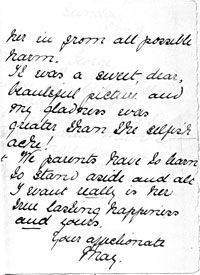 her in from all possible
harm.
It was a sweet, dear,
beautiful picture and
my gladness was
greater than the selfish
ache!
+ We parents have to learn
to stand aside and all
I want really is her
true lasting happiness
and yours.
Your affectionate
May.